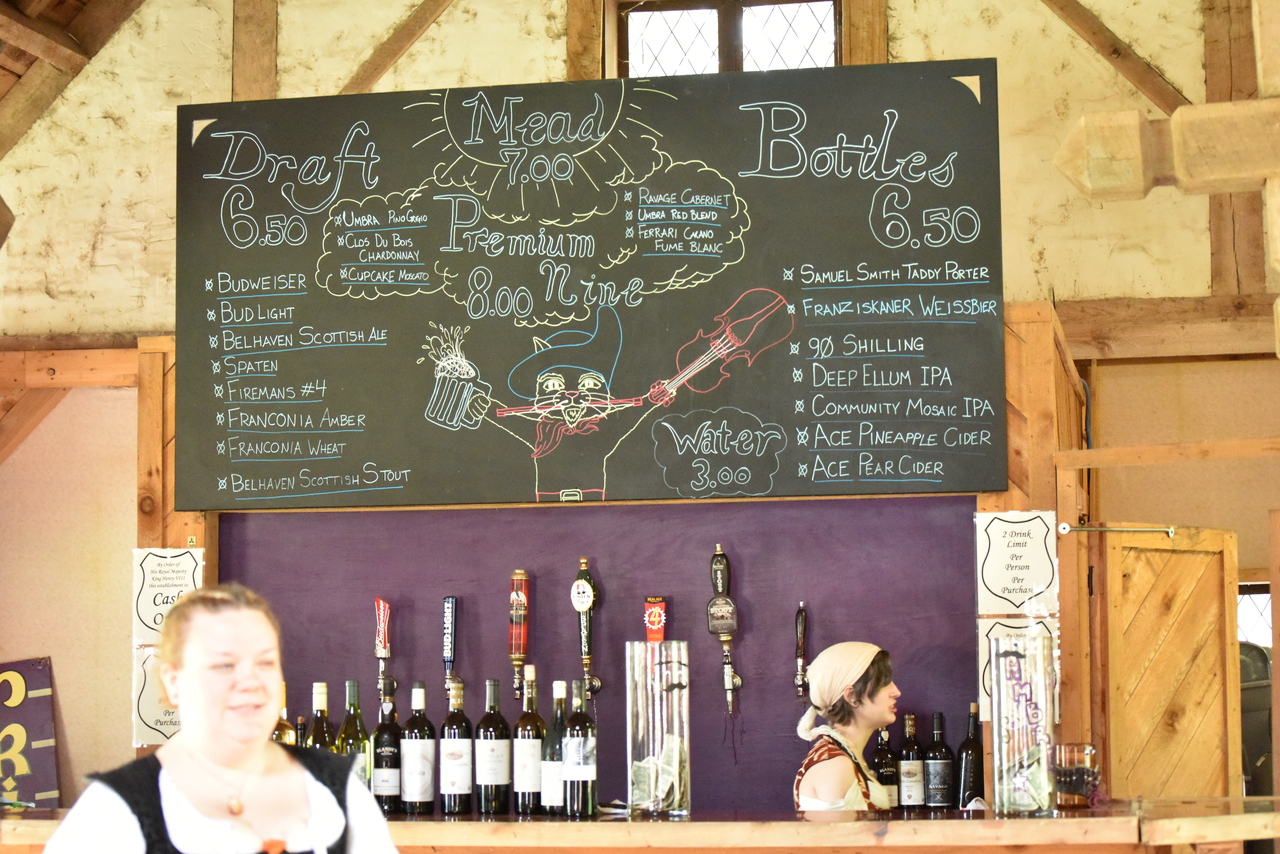 Draft
6.50
BUDWEISER
BUD LIGHT
BELHAVEN SCOTTISH ALE
SPATEN
FIREMANS #4
FRANCONIA AMBER
FRANCONIA WHEAT
BELHAVEN SCOTTISH STOUT
Mead
7.00
UMBRA PINO GRIGIO
CLOS DU BOIS
CHARDONNAY
CUPCAKE MOSCATO
Premium
Nine
8.00
RAVAGE CABERNET
UMBRA RED BLEND
FERRARI CARANO
FUME BLANC
Water
3.00
Bottles
6.50
SAMUEL SMITH TADDY PORTER
FRANZISKANER WEISSBIER
90 SHILLING
DEEP ELLUM IPA
COMMUNITY MOSAIC IPA
ACE PINEAPPLE CIDER
ACE PEAR CIDER
By Order of
His Royal Majesty
King Henry VIII
this establishment is
Cash
O
Per
Purchase
2 Drink
Limit
Per
Person
Per
Purchase
Budweiser
BUD LIGHT
4